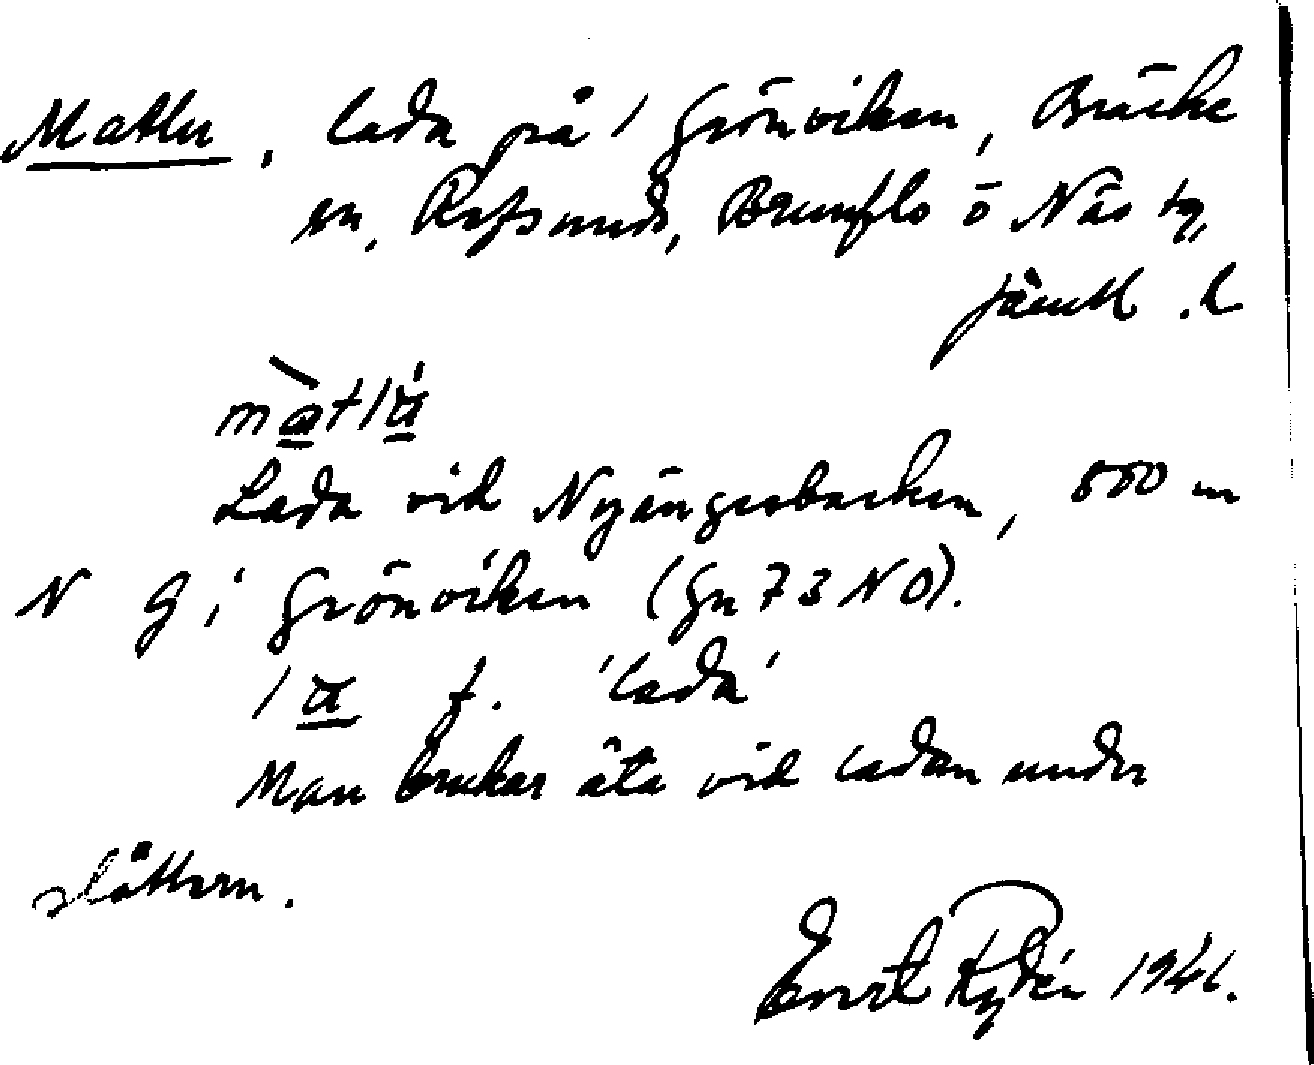 Matlu, lada på Grönviken, Bräcke
sn, Refsunds, Brunflo o Näs tg,
Jämtl. l
màtlɑ̀
Lada vid Nyängesbacken, 550 m
N g i Grönviken (Gn 73 NO).
lɑ f. 'lada'
Man brukar äta vid ladan under
slåttern.
Ernst Rydén 1941.